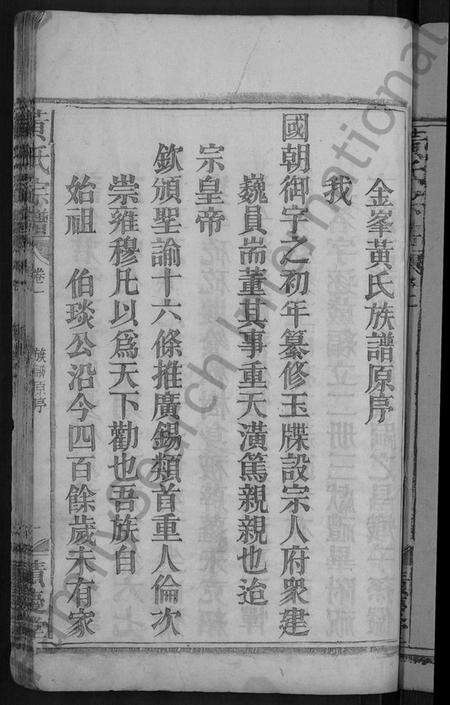 金峯黃氏族譜原序
我
國朝御宇之初年纂修玉牒設宗人府衆建
巍員耑董其事重天潢篤親親也迨
宗皇帝
欽頒聖諭十六條推廣錫類首重人倫次
崇雍穆凡以爲天下勸也吾族自
始祖 伯琰公沿今四百餘歲未有家
黃氏宗譜 卷一 族譜原序